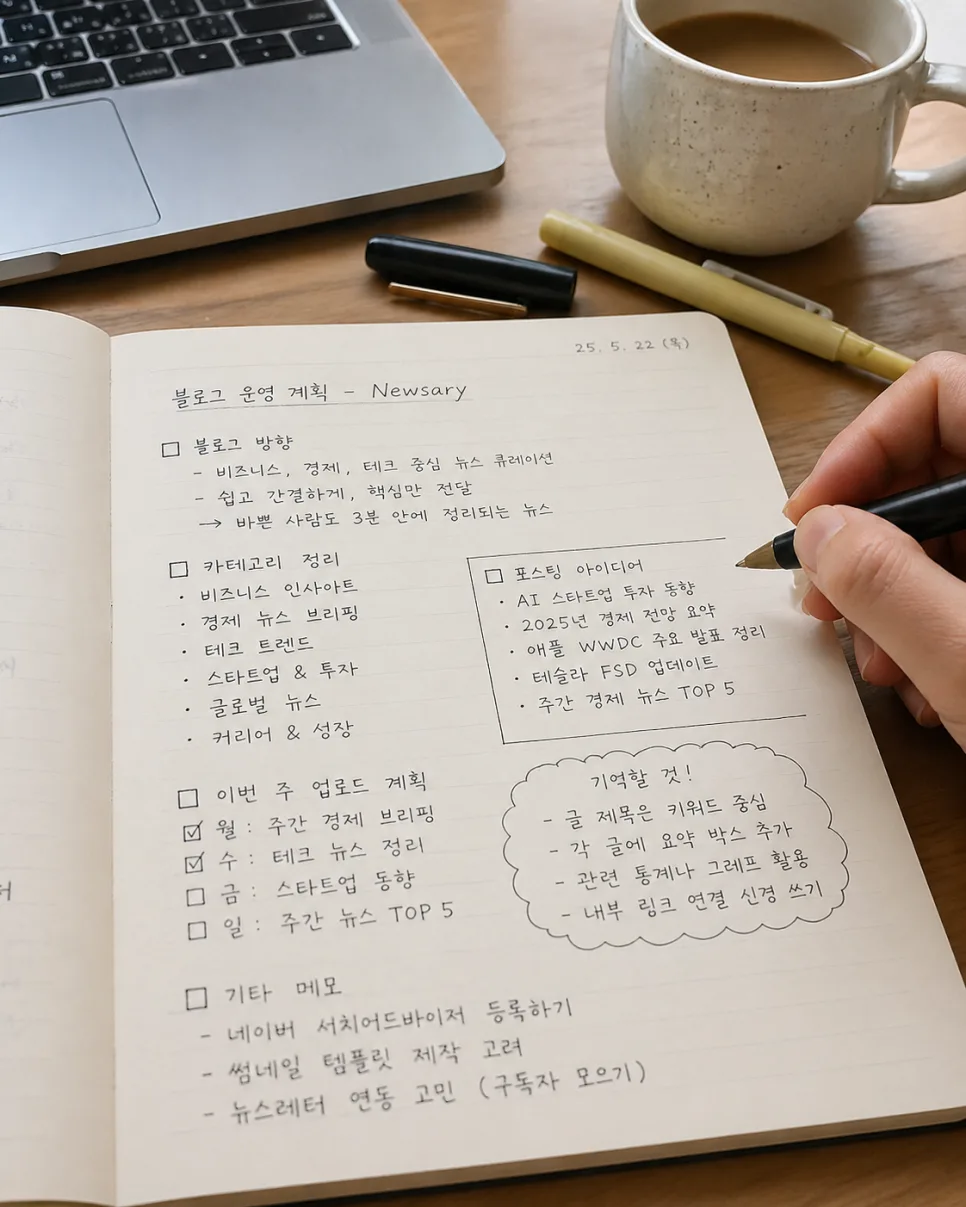 25. 5. 22 (목)
블로그 운영 계획 - Newsary
☐ 블로그 방향
- 비즈니스, 경제, 테크 중심 뉴스 큐레이션
- 쉽고 간결하게, 핵심만 전달
→ 바쁜 사람도 3분 안에 정리되는 뉴스
☐ 카테고리 정리
· 비즈니스 인사이트
· 경제 뉴스 브리핑
· 테크 트렌드
· 스타트업 & 투자
· 글로벌 뉴스
· 커리어 & 성장
☐ 포스팅 아이디어
· AI 스타트업 투자 동향
· 2025년 경제 전망 요약
· 애플 WWDC 주요 발표 정리
· 테슬라 FSD 업데이트
· 주간 경제 뉴스 TOP 5
☐ 이번 주 업로드 계획
☑ 월 : 주간 경제 브리핑
☑ 수 : 테크 뉴스 정리
☐ 금 : 스타트업 동향
☐ 일 : 주간 뉴스 TOP 5
기억할 것!
- 글 제목은 키워드 중심
- 각 글에 요약 박스 추가
- 관련 통계나 그레프 활용
- 내부 링크 연결 신경 쓰기
☐ 기타 메모
- 네이버 서치어드바이저 등록하기
- 썸네일 템플릿 제작 고려
- 뉴스레터 연동 고민 (구독자 모으기)